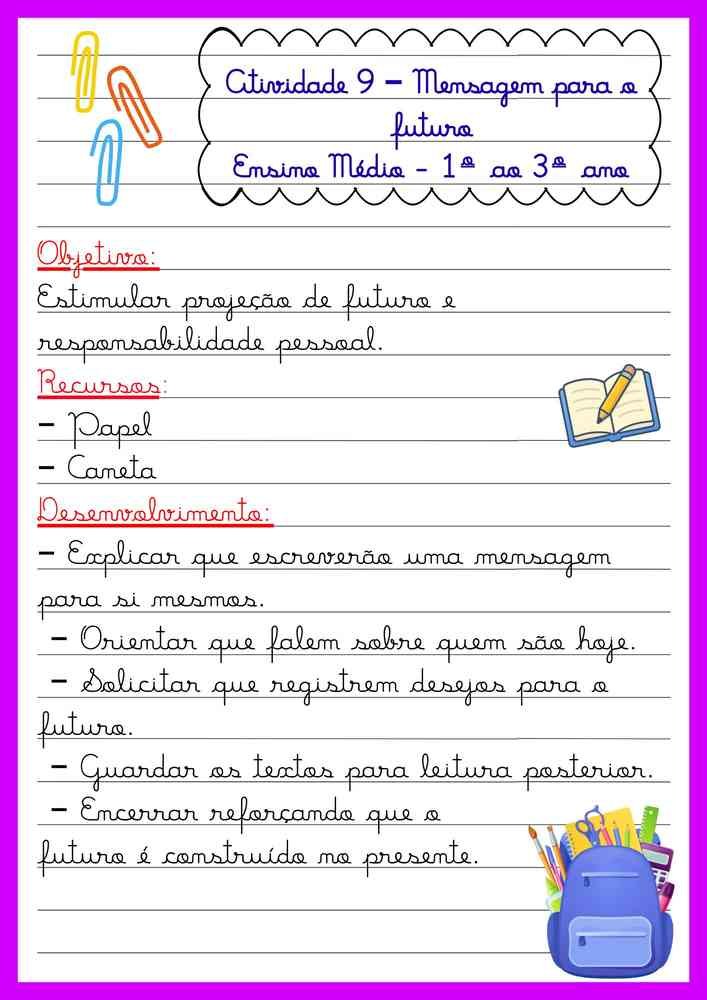 Atividade 9 – Mensagem para o
futuro
Ensino Médio - 1º ao 3º ano
Objetivo:
Estimular projeção de futuro e
responsabilidade pessoal.
Recursos:
- Papel
- Caneta
Desenvolvimento:
- Explicar que escreverão uma mensagem
para si mesmos.
- Orientar que falem sobre quem são hoje.
- Solicitar que registrem desejos para o
futuro.
- Guardar os textos para leitura posterior.
- Encerrar reforçando que o
futuro é construído no presente.